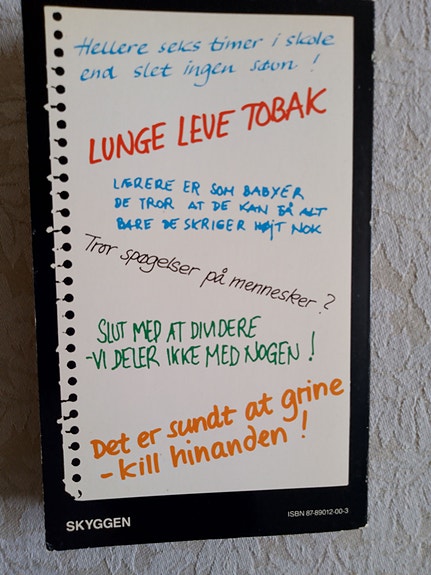 Hellere seks timer i skole
end slet ingen søvn !
LUNGE LEVE TOBAK
LÆRERE ER SOM BABYER
DE TROR AT DE KAN FÅ ALT
BARE DE SKRIGER HØJT NOK
Tror spøgelser på mennesker ?
SLUT MED AT DIVIDERE
-VI DELER IKKE MED NOGEN !
Det er sundt at grine
- kill hinanden !
SKYGGEN
ISBN 87-89012-00-3